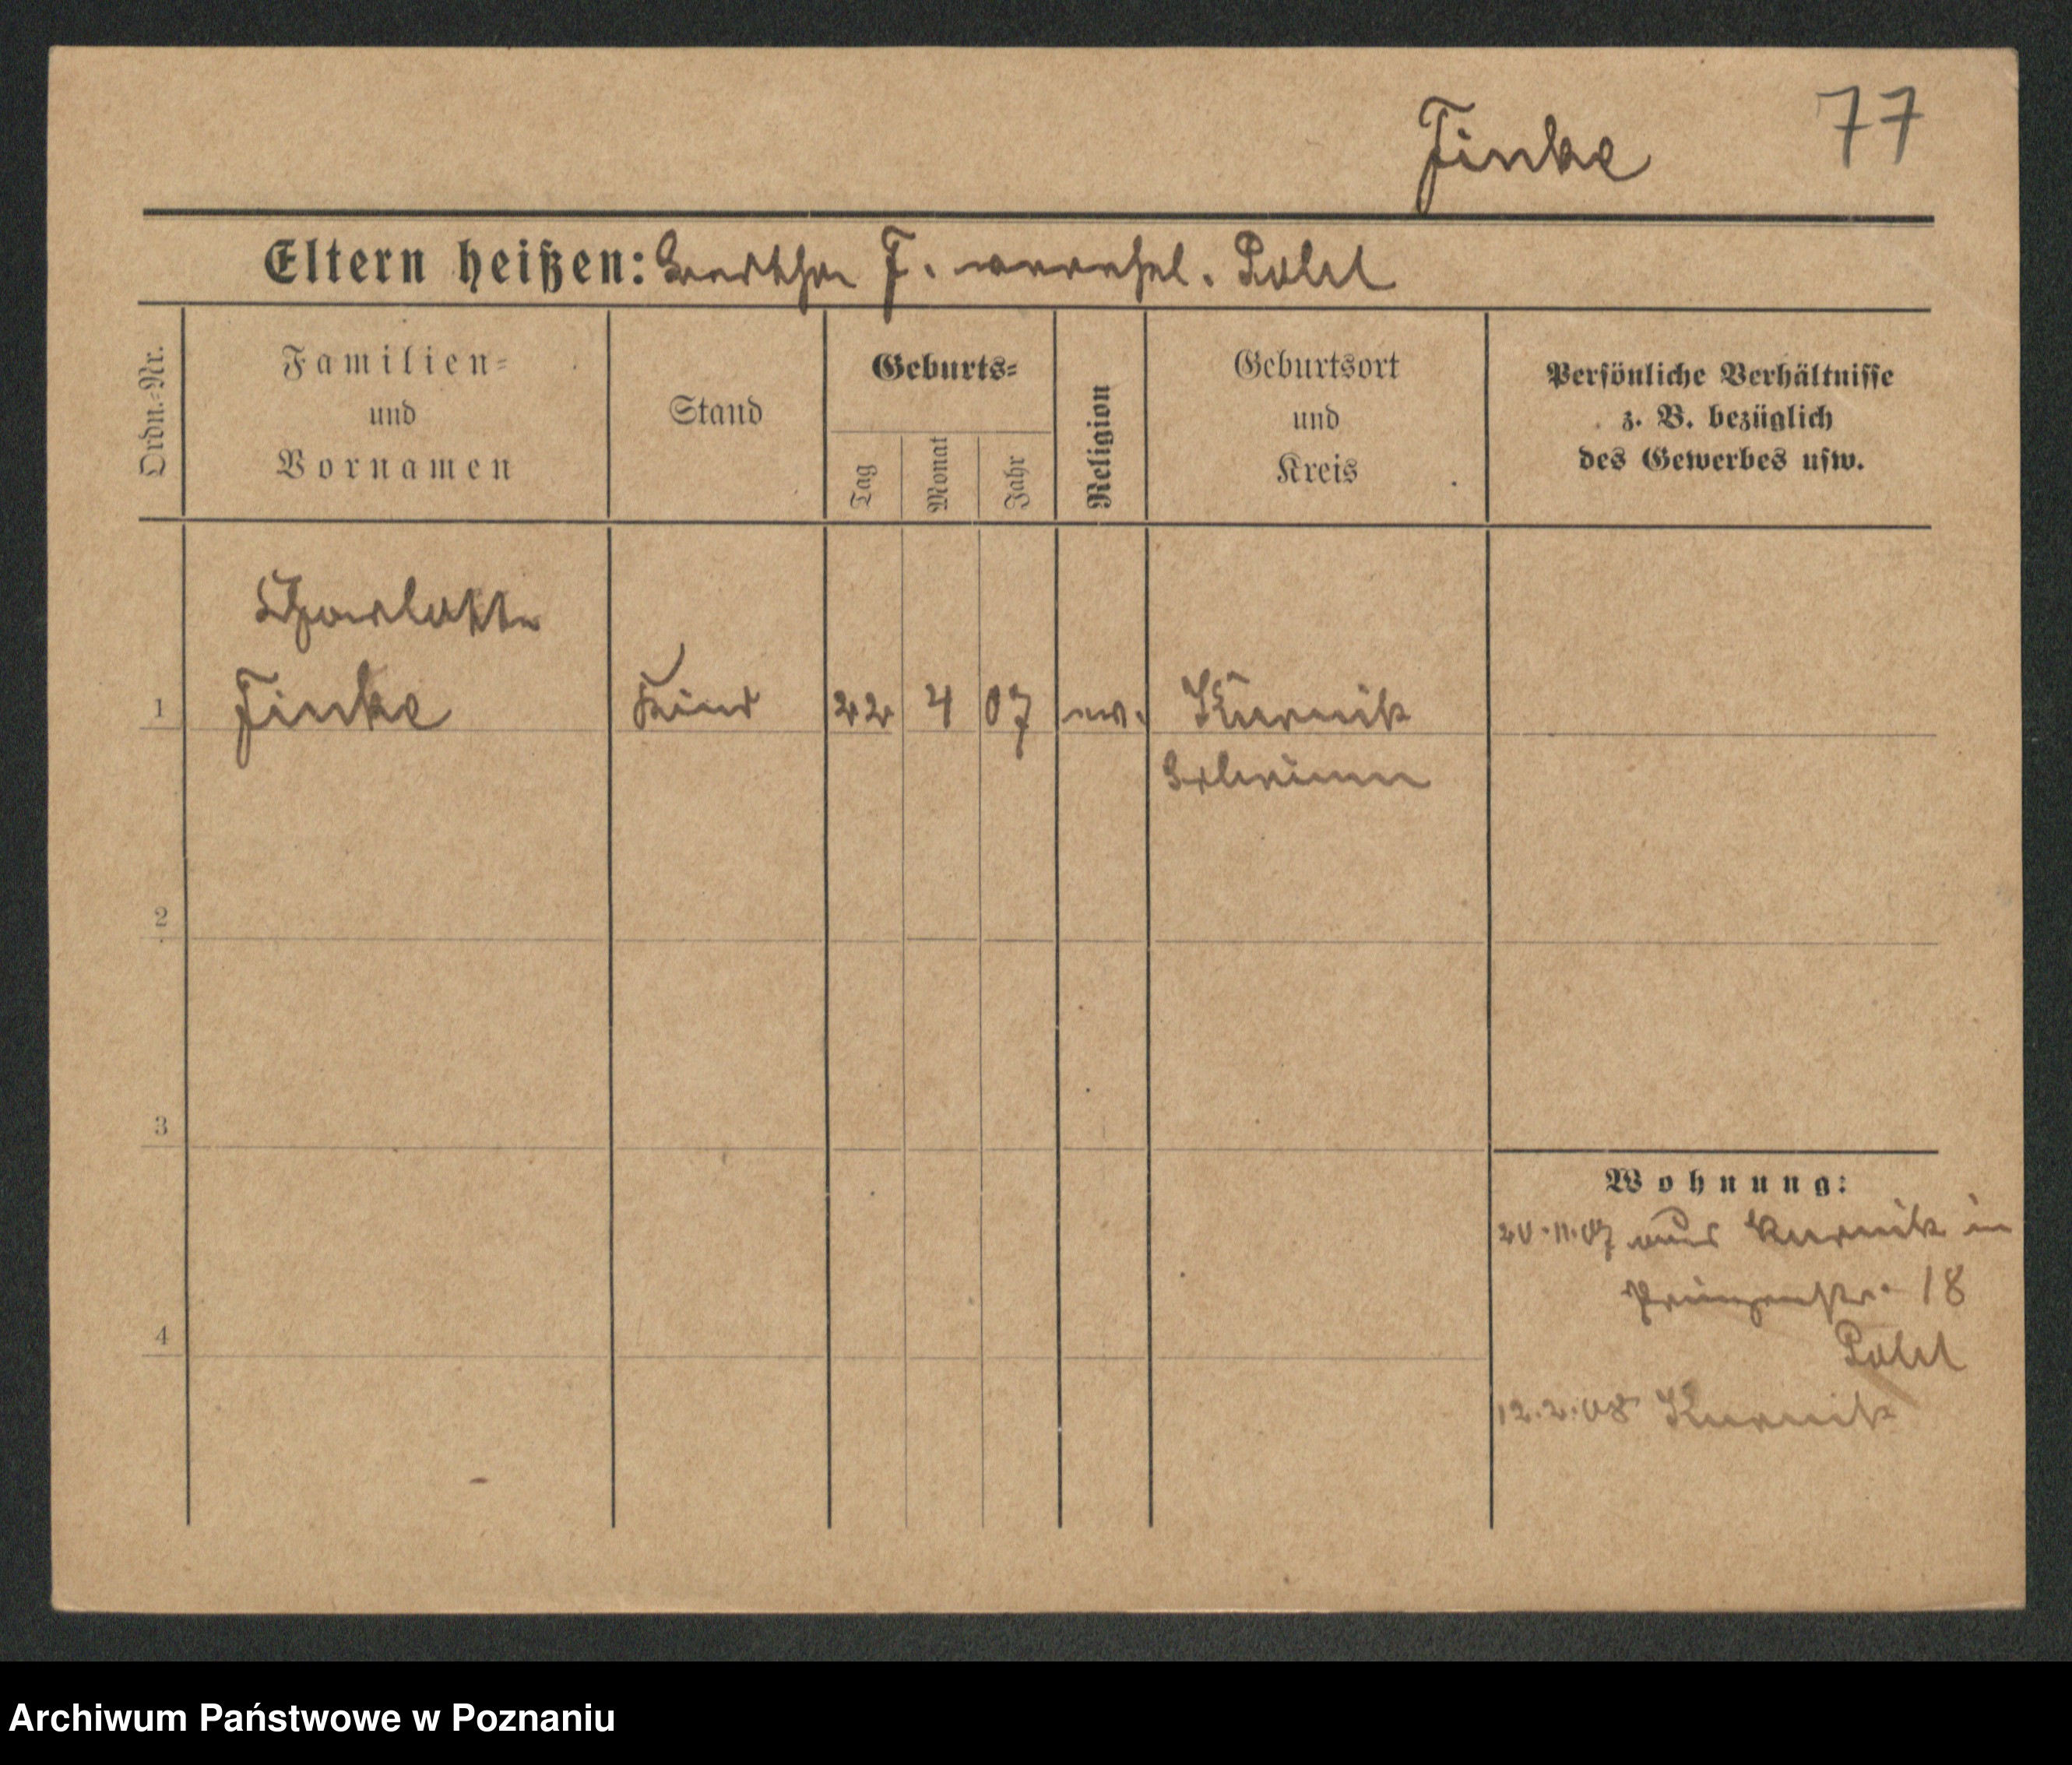 Finke 77
Eltern heißen: Bertha F. verehel. Pohl
Ordn.-Nr.
Familien-
und
Vornamen
Stand
Geburts-
Tag
Monat
Jahr
Religion
Geburtsort
und
Kreis
Persönliche Verhältnisse
z. B. bezüglich
des Gewerbes usw.
Charlotte
1 Finke Kind 22 4 07 ev. Kurnik
Schrimm
2
3
4
Wohnung:
20.11.07 aus Kurnik in
Prinzenstr. 18
Pohl
12.2.08 Kurnik
Archiwum Państwowe w Poznaniu